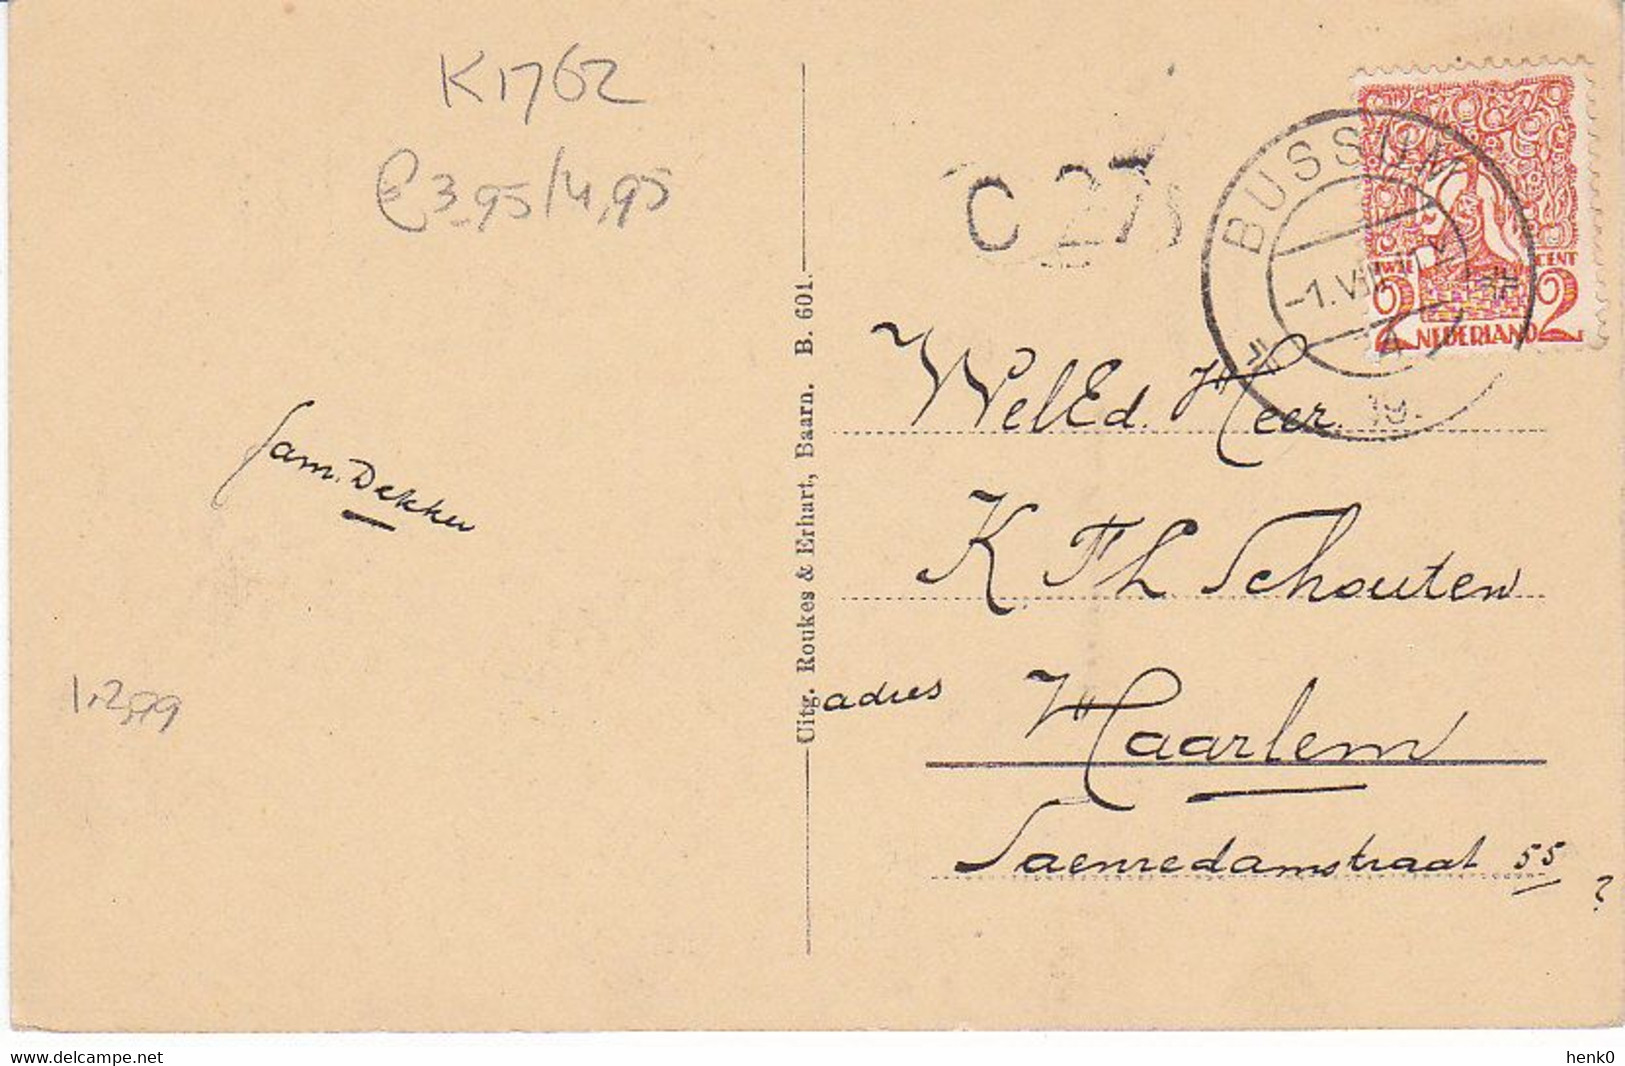 K1762
3.95/4,95
C 27
BUSSUM
-1.VIII
4
19
TWEE CENT
2 NEDERLAND 2
WelEd. Heer.
K Th L Schouten
adres Haarlem
Saenredamstraat 55
?
fam. Dekker
Uitg. Roukes & Erhart, Baarn. B. 601.
www.delcampe.net
henk0